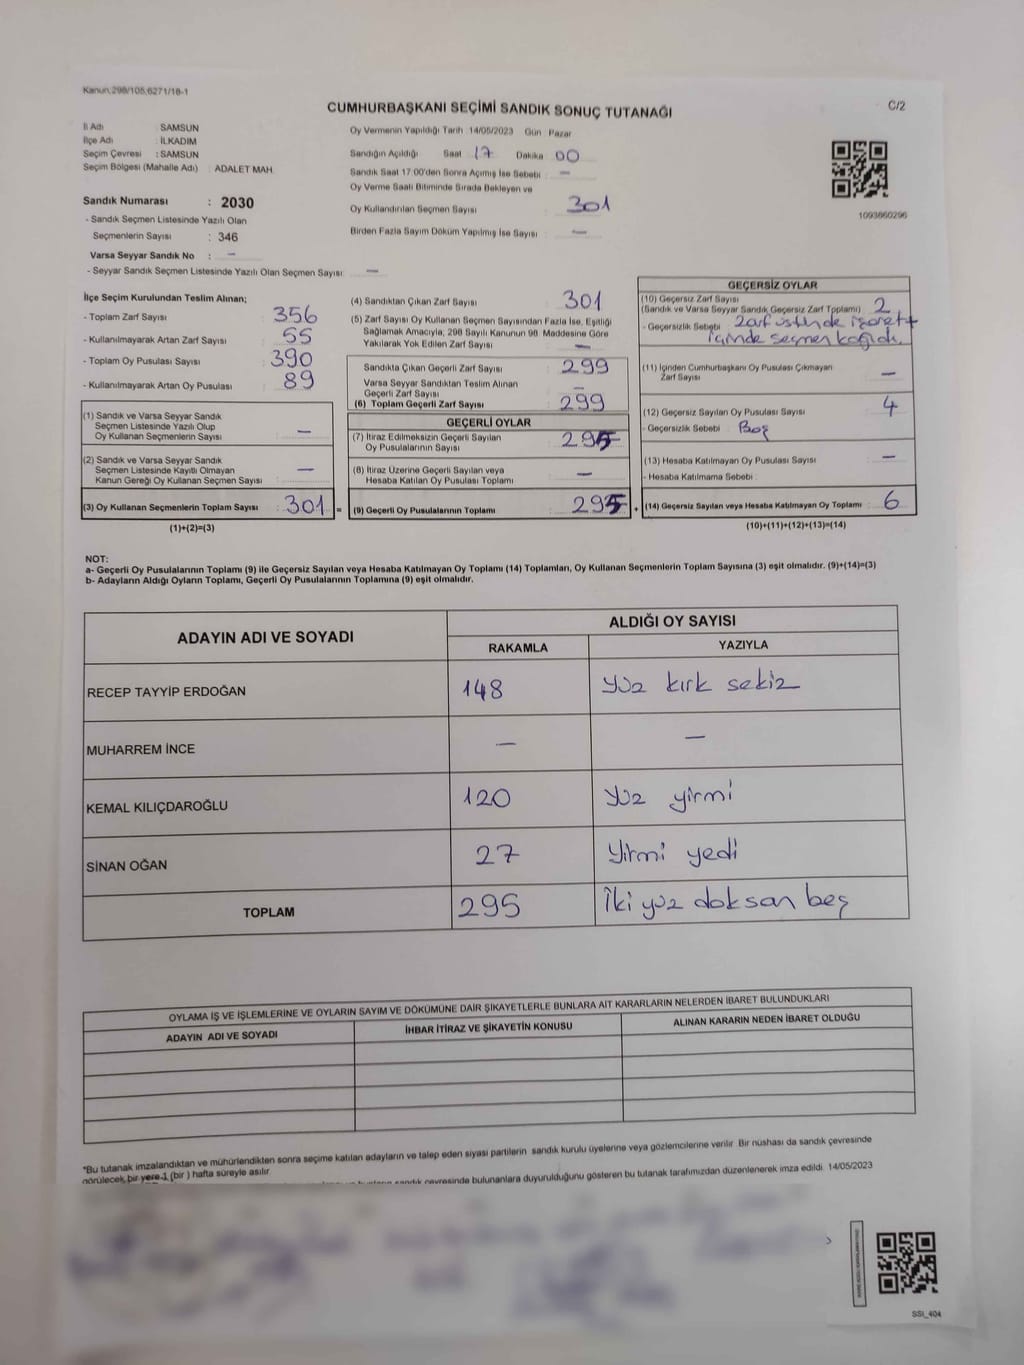 Kanun:298/105,6271/18-1
CUMHURBAŞKANI SEÇİMİ SANDIK SONUÇ TUTANAĞI
C/2
İl Adı : SAMSUN
İlçe Adı : İLKADIM
Seçim Çevresi : SAMSUN
Seçim Bölgesi (Mahalle Adı) : ADALET MAH.
Sandık Numarası : 2030
- Sandık Seçmen Listesinde Yazılı Olan
Seçmenlerin Sayısı : 346
Varsa Seyyar Sandık No : —
- Seyyar Sandık Seçmen Listesinde Yazılı Olan Seçmen Sayısı: —
Oy Vermenin Yapıldığı Tarih 14/05/2023 Gün Pazar
Sandığın Açıldığı Saat 17 Dakika 00
Sandık Saat 17:00'den Sonra Açılmış İse Sebebi : —
Oy Verme Saati Bitiminde Sırada Bekleyen ve
Oy Kullandırılan Seçmen Sayısı : 301
Birden Fazla Sayım Döküm Yapılmış İse Sayısı : —
1093660296
İlçe Seçim Kurulundan Teslim Alınan;
- Toplam Zarf Sayısı : 356
- Kullanılmayarak Artan Zarf Sayısı : 55
- Toplam Oy Pusulası Sayısı : 390
- Kullanılmayarak Artan Oy Pusulası : 89
(1) Sandık ve Varsa Seyyar Sandık
Seçmen Listesinde Yazılı Olup
Oy Kullanan Seçmenlerin Sayısı : —
(2) Sandık ve Varsa Seyyar Sandık
Seçmen Listesinde Kayıtlı Olmayan
Kanun Gereği Oy Kullanan Seçmen Sayısı : —
(3) Oy Kullanan Seçmenlerin Toplam Sayısı : 301 =
(1)+(2)=(3)
(4) Sandıktan Çıkan Zarf Sayısı : 301
(5) Zarf Sayısı Oy Kullanan Seçmen Sayısından Fazla İse, Eşitliği
Sağlamak Amacıyla, 298 Sayılı Kanunun 98. Maddesine Göre
Yakılarak Yok Edilen Zarf Sayısı : —
Sandıkta Çıkan Geçerli Zarf Sayısı : 299
Varsa Seyyar Sandıktan Teslim Alınan
Geçerli Zarf Sayısı : —
(6) Toplam Geçerli Zarf Sayısı : 299
GEÇERLİ OYLAR
(7) İtiraz Edilmeksizin Geçerli Sayılan
Oy Pusulalarının Sayısı : 295
(8) İtiraz Üzerine Geçerli Sayılan veya
Hesaba Katılan Oy Pusulası Toplamı : —
(9) Geçerli Oy Pusulalarının Toplamı : 295 +
GEÇERSİZ OYLAR
(10) Geçersiz Zarf Sayısı
(Sandık ve Varsa Seyyar Sandık Geçersiz Zarf Toplamı) : 2
- Geçersizlik Sebebi : Zarf üstünde işaret +
içinde seçmen kağıdı.
(11) İçinden Cumhurbaşkanı Oy Pusulası Çıkmayan
Zarf Sayısı : —
(12) Geçersiz Sayılan Oy Pusulası Sayısı : 4
- Geçersizlik Sebebi : Boş
(13) Hesaba Katılmayan Oy Pusulası Sayısı : —
- Hesaba Katılmama Sebebi :
(14) Geçersiz Sayılan veya Hesaba Katılmayan Oy Toplamı : 6
(10)+(11)+(12)+(13)=(14)
NOT:
a- Geçerli Oy Pusulalarının Toplamı (9) ile Geçersiz Sayılan veya Hesaba Katılmayan Oy Toplamı (14) Toplamları, Oy Kullanan Seçmenlerin Toplam Sayısına (3) eşit olmalıdır. (9)+(14)=(3)
b- Adayların Aldığı Oyların Toplamı, Geçerli Oy Pusulalarının Toplamına (9) eşit olmalıdır.
ADAYIN ADI VE SOYADI
ALDIĞI OY SAYISI
RAKAMLA YAZIYLA
RECEP TAYYİP ERDOĞAN 148 yüz kırk sekiz
MUHARREM İNCE — —
KEMAL KILIÇDAROĞLU 120 yüz yirmi
SİNAN OĞAN 27 Yirmi yedi
TOPLAM 295 İki yüz doksan beş
OYLAMA İŞ VE İŞLEMLERİNE VE OYLARIN SAYIM VE DÖKÜMÜNE DAİR ŞİKAYETLERLE BUNLARA AİT KARARLARIN NELERDEN İBARET BULUNDUKLARI
ADAYIN ADI VE SOYADI İHBAR İTİRAZ VE ŞİKAYETİN KONUSU ALINAN KARARIN NEDEN İBARET OLDUĞU
*Bu tutanak imzalandıktan ve mühürlendikten sonra seçime katılan adayların ve talep eden siyasi partilerin sandık kurulu üyelerine veya gözlemcilerine verilir. Bir nüshası da sandık çevresinde
görülecek bir yere 1 (bir ) hafta süreyle asılır.
sandık çevresinde bulunanlara duyurulduğunu gösteren bu tutanak tarafımızdan düzenlenerek imza edildi. 14/05/2023
SSI_404